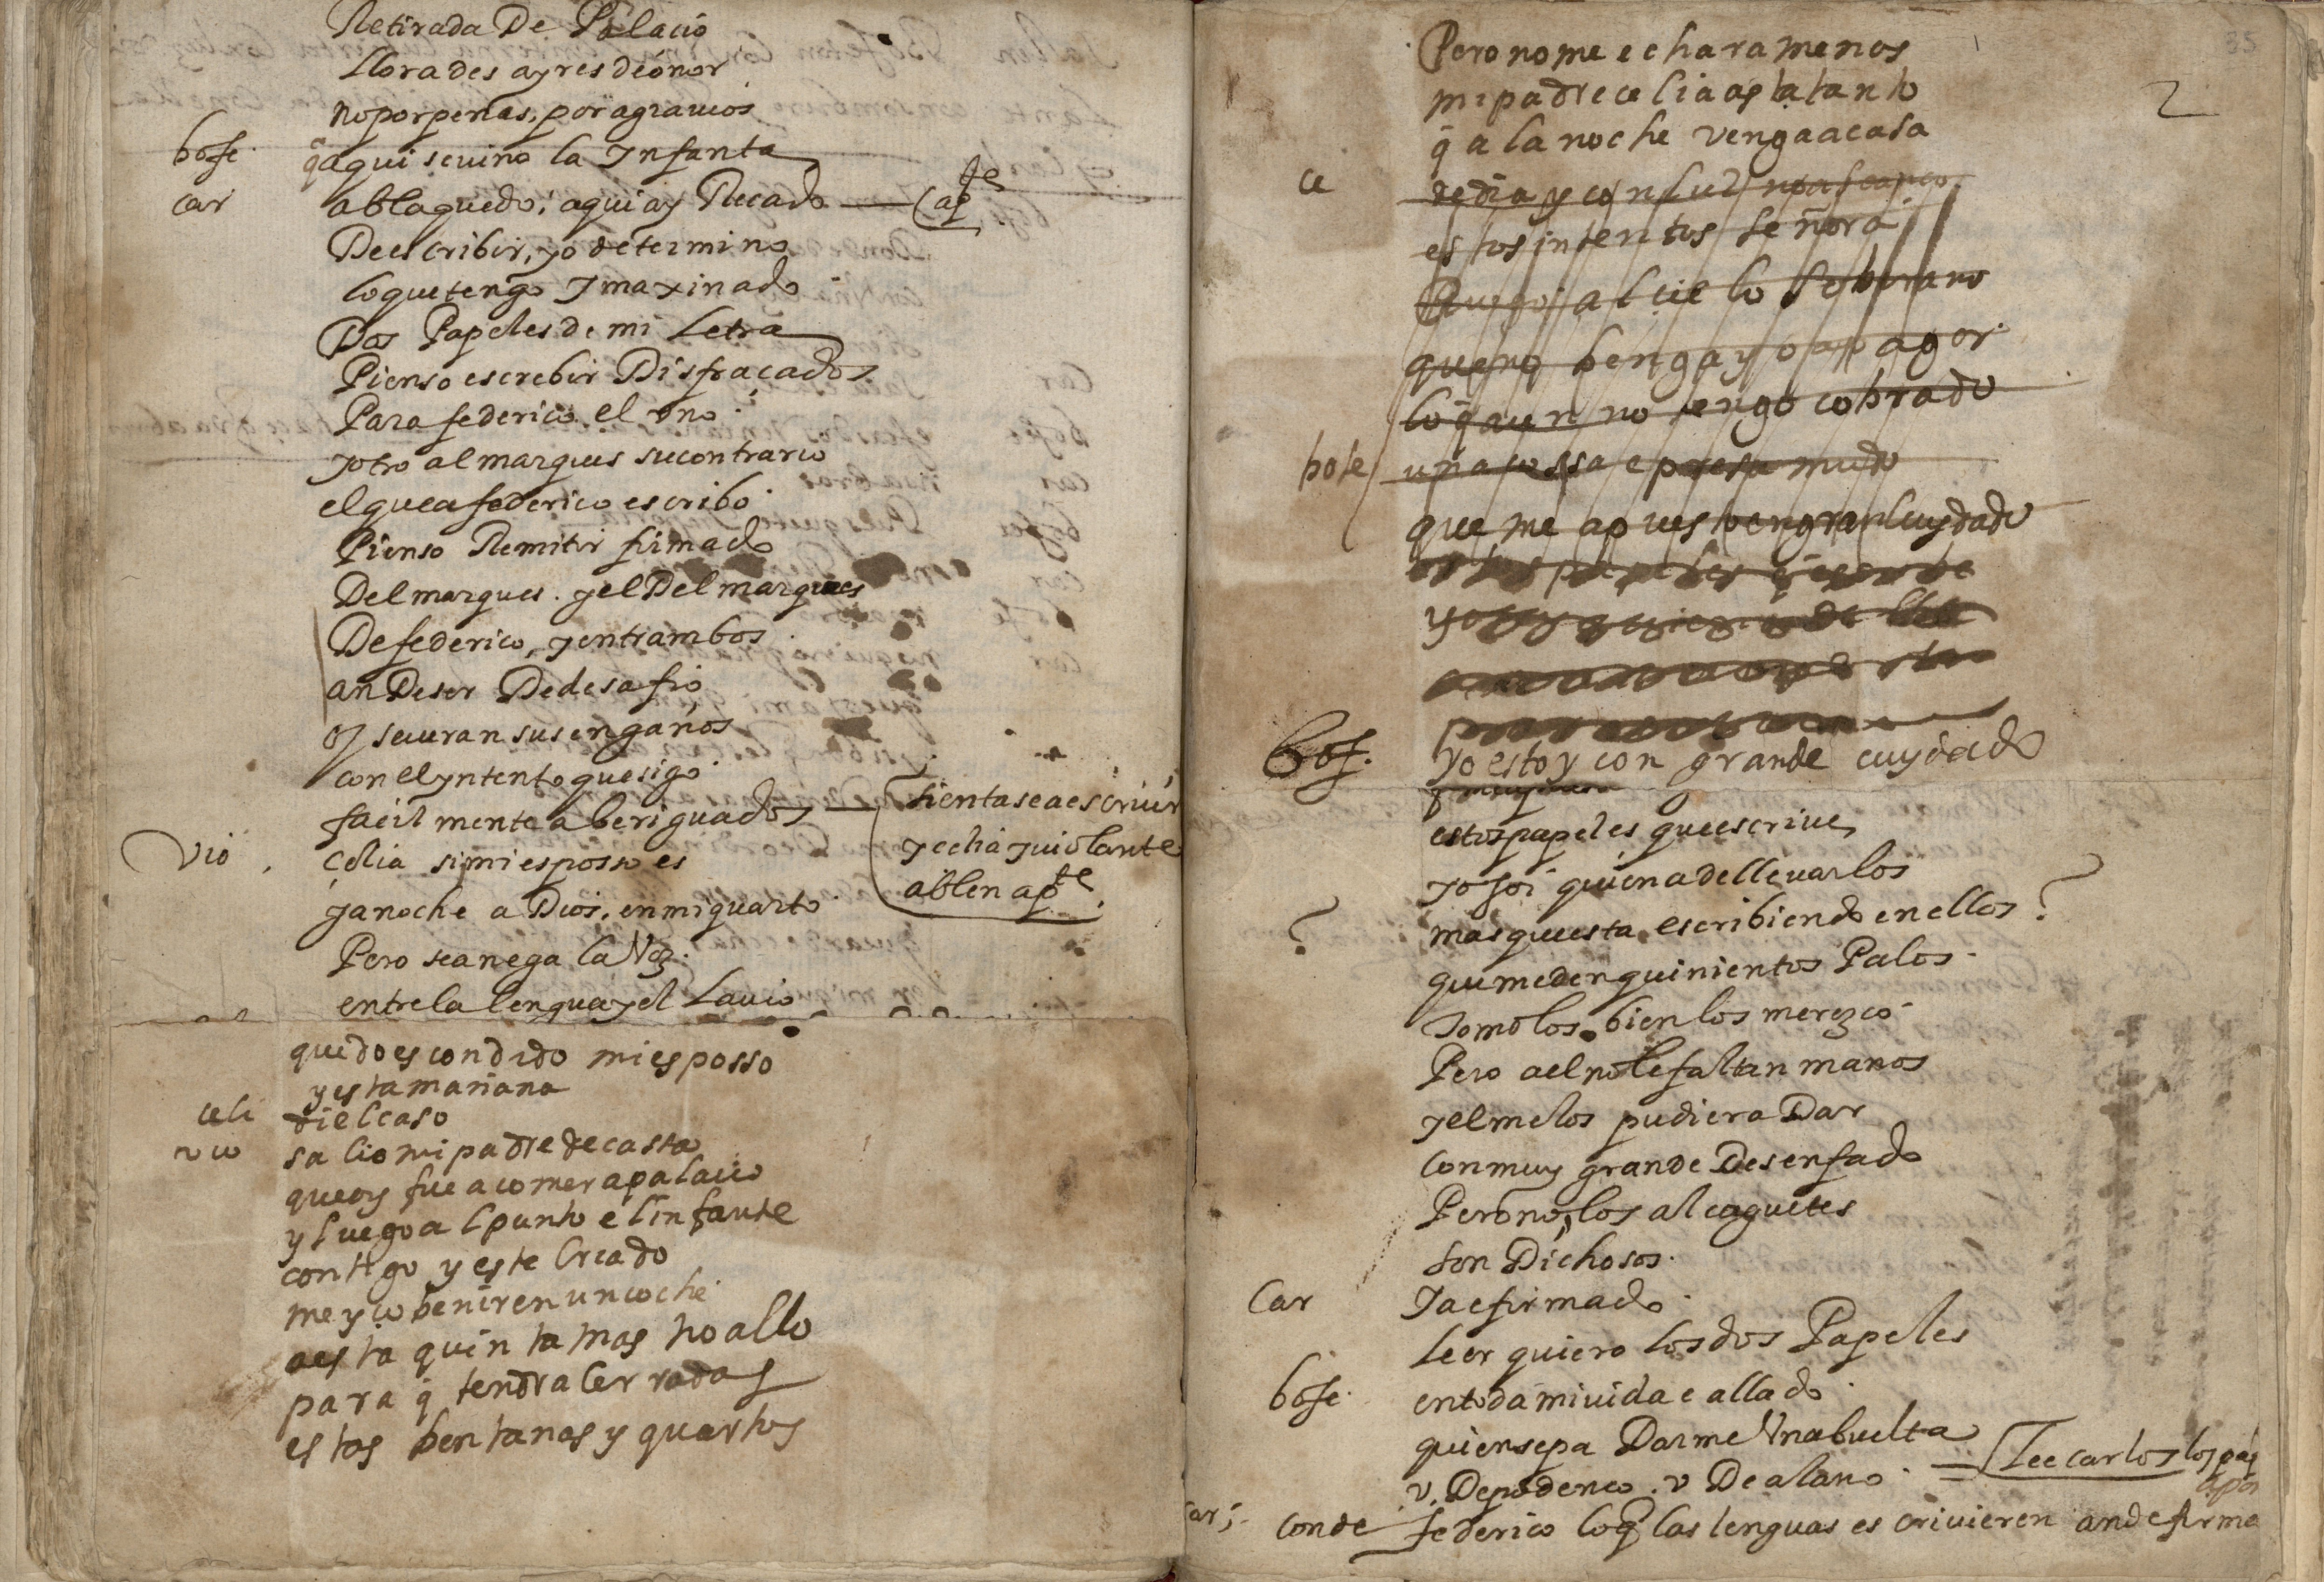 Retirada De Palacio
llorades ayres deonor
no por penas, por agrauios
bofe. q̃ aqui se uino la Infanta
car ablaquedo, aqui ay Recado — (ap^te
De escribir, yo determino
lo que tengo Imaxinado
Dos Papeles de mi Letra
Pienso escrebir Disfraçados
Para federico el vno.
y otro al marques su contrario
el que a federico escribo.
Pienso Remitir firmado
Del marques. y el Del marques
De federico, y entrambos.
an De ser De desafio
seueran sus engaños
con el yntento que sigo.
facil mente aberiguados — (sientase a escriuir
y celia y uiolante
ablen ap^te.
Vio. Çelia si mi esposso es
ya noche a Dios, en mi quarto.
Pero sea nega la Voz.
entre la lengua y el Lauio
quedo escondido mi esposso
y esta mañana
celi di el caso
vio salio mi padre de casta
que oy fue a comer a palacio
y luego al punto el infante
contigo y este criado
me yço benir en un coche
a esta quinta mas no allo
para q̃ tendra cerradas
estas bentanas y quartos
35
2
Pero no me echara menos
mi padre celia asta tanto
q̃ a la noche venga a casa
ce de dia y con luz
estos intentos señora
Ruego al cielo soberano
que no benga yo a pagar
lo q̃ aun no tengo cobrado
bofe una cossa e
que me a puesto en gran cuydado
Bof. Yo estoy con grande cuydado
estos papeles que escriue
yo soi quien a de lleuarlos
? mas que esta escribiendo en ellos ?
que me den quinientos Palos.
tomolos. bien los merezco.
Pero a el no le faltan manos
y el me los pudiera Dar
con muy grande Desenfado
Pero no, los alcaguetes
son Dichosos.
Car Ya e firmado.
leer quiero los dos Papeles
bofe. en toda mi uida e allado.
quien sepa Darme Vna buelta
v. De podenco. v De alano. = (Lee carlos los pap
Car; conde federico lo q̃ las lenguas escriuieren an de firma